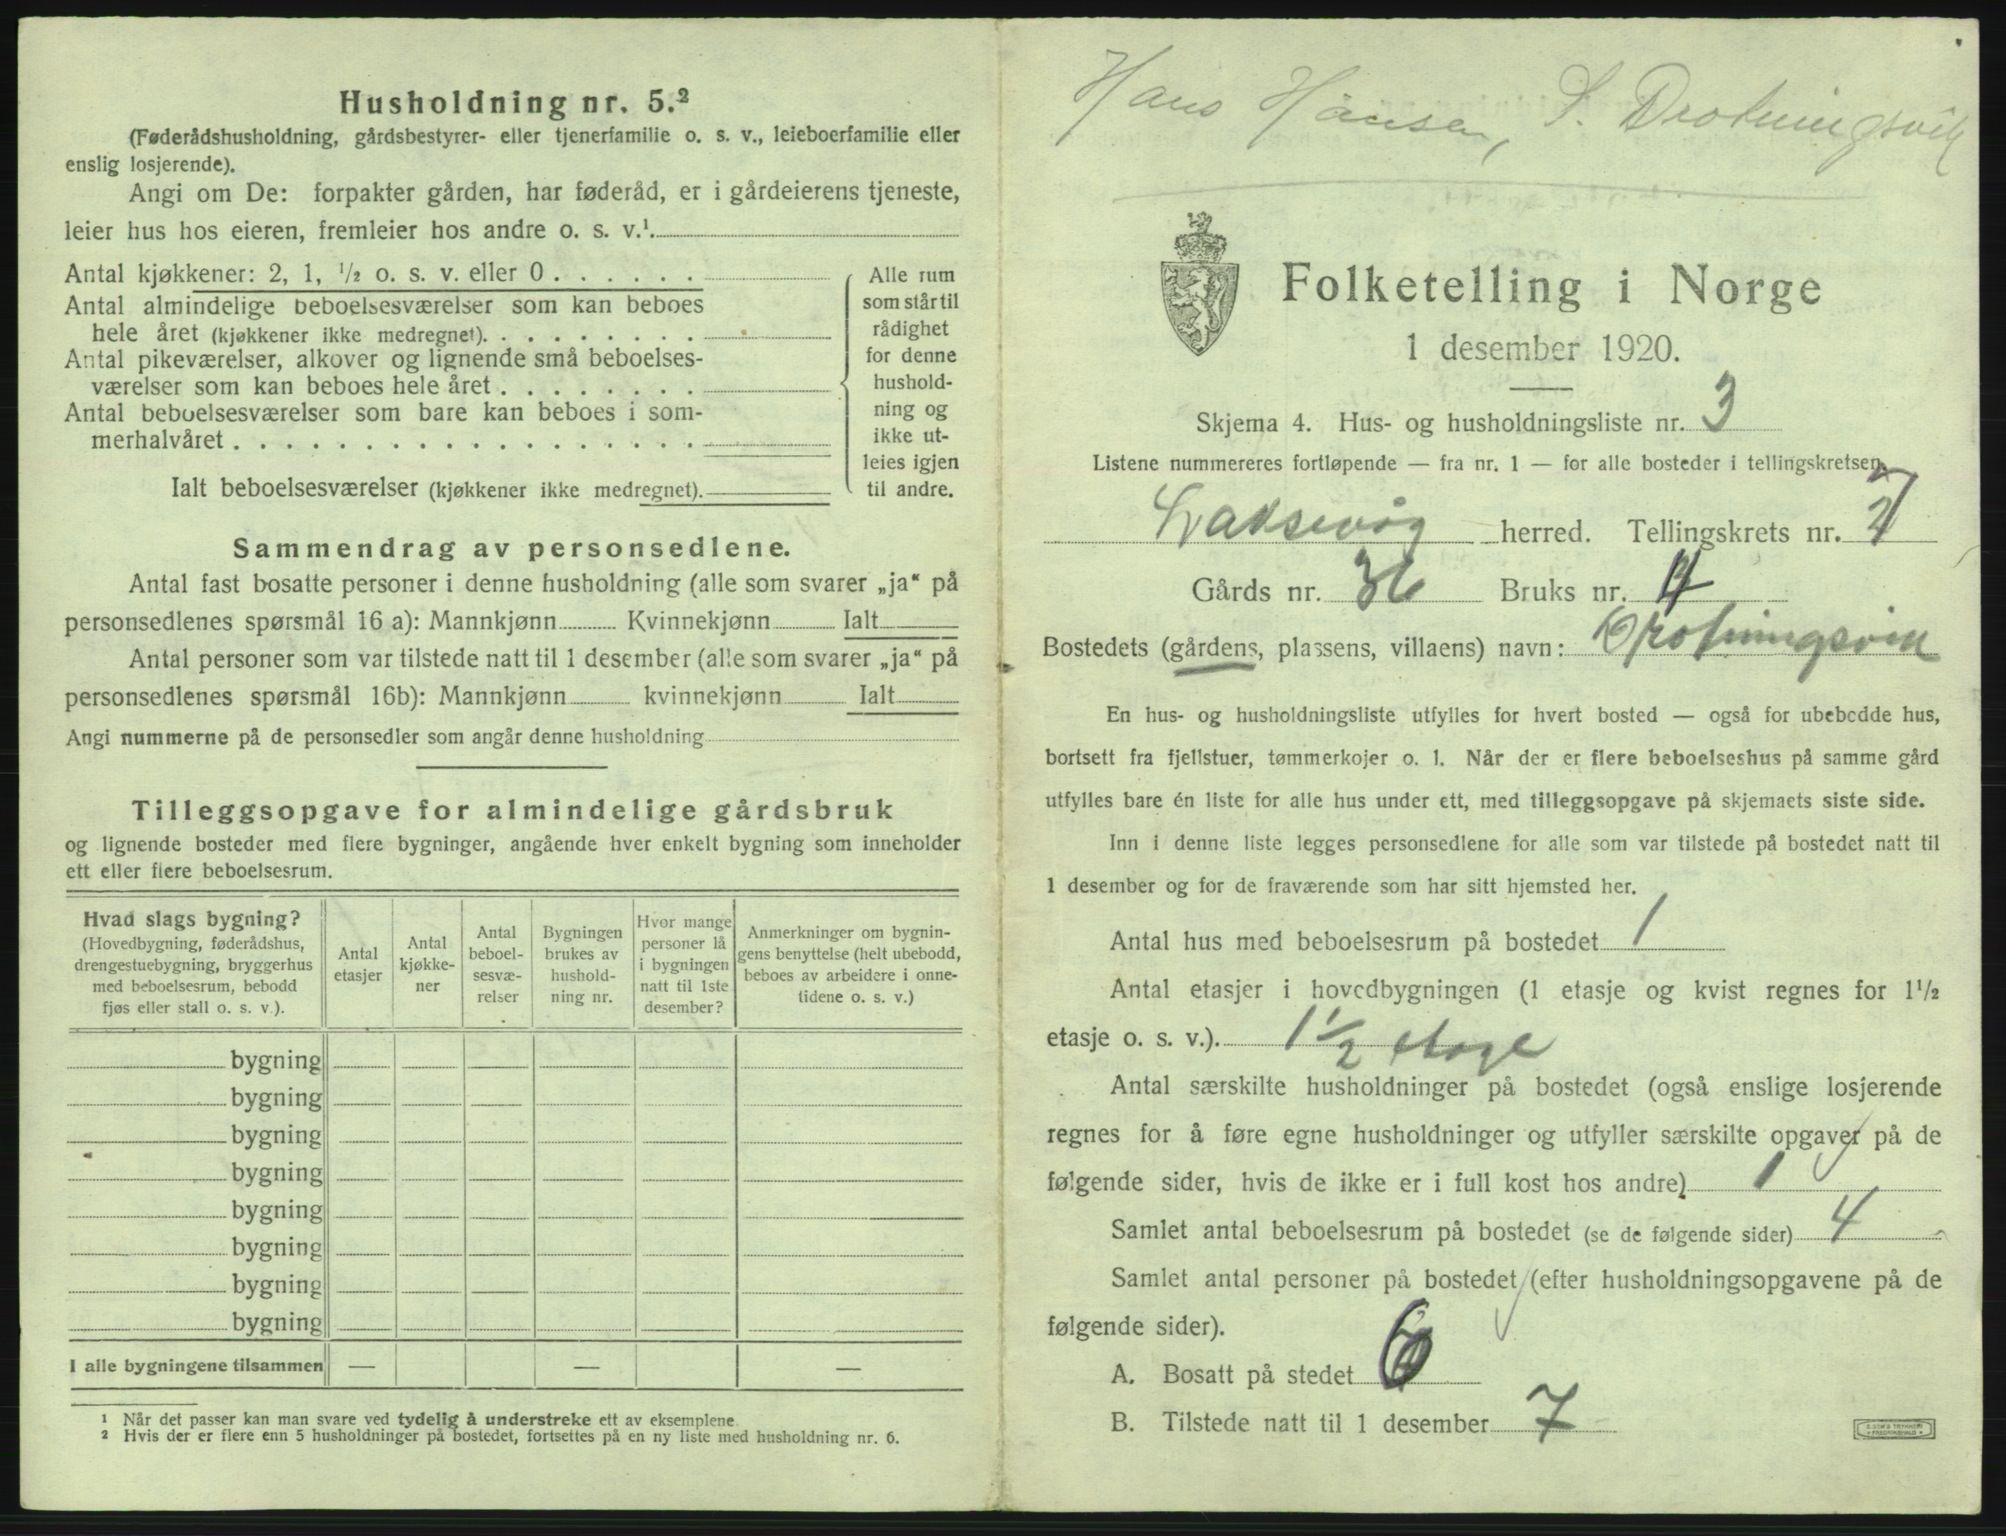 Husholdning nr. 5.²
(Føderådshusholdning, gårdsbestyrer- eller tjenerfamilie o. s. v., leieboerfamilie eller
enslig losjerende).
Angi om De: forpakter gården, har føderåd, er i gårdeierens tjeneste,
leier hus hos eieren, fremleier hos andre o. s. v.¹.
Antal kjøkkener: 2, 1, ½ o. s. v. eller 0 . . . . . .
Antal almindelige beboelsesværelser som kan beboes
hele året (kjøkkener ikke medregnet). . . . . . . . .
Antal pikeværelser, alkover og lignende små beboelses-
værelser som kan beboes hele året . . . . . . . .
Antal beboelsesværelser som bare kan beboes i som-
merhalvåret . . . . . . . . . . . . . . . . . .
Ialt beboelsesværelser (kjøkkener ikke medregnet).
Alle rum
som står til
rådighet
for denne
hushold-
ning og
ikke ut-
leies igjen
til andre.
Sammendrag av personsedlene.
Antal fast bosatte personer i denne husholdning (alle som svarer „ja“ på
personsedlenes spørsmål 16 a): Mannkjønn Kvinnekjønn Ialt
Antal personer som var tilstede natt til 1 desember (alle som svarer „ja“ på
personsedlenes spørsmål 16b): Mannkjønn kvinnekjønn Ialt
Angi nummerne på de personsedler som angår denne husholdning
Tilleggsopgave for almindelige gårdsbruk
og lignende bosteder med flere bygninger, angående hver enkelt bygning som inneholder
ett eller flere beboelsesrum.
Hvad slags bygning?
(Hovedbygning, føderådshus,
drengestuebygning, bryggerhus
med beboelsesrum, bebodd
fjøs eller stall o. s. v.).
Antal
etasjer
Antal
kjøkke-
ner
Antal
beboel-
sesvæ-
relser
Bygningen
brukes av
hushold-
ning nr.
Hvor mange
personer lå
i bygningen
natt til 1ste
desember?
Anmerkninger om bygnin-
gens benyttelse (helt ubebodd,
beboes av arbeidere i onne-
tidene o. s. v.)
bygning
bygning
bygning
bygning
bygning
bygning
bygning
bygning
I alle bygningene tilsammen — — —
¹ Når det passer kan man svare ved tydelig å understreke ett av eksemplene
² Hvis der er flere enn 5 husholdninger på bostedet, fortsettes på en ny liste med husholdning nr. 6.
Hans Hansen, S. Drotningsvik
Folketelling i Norge
1 desember 1920.
Skjema 4. Hus- og husholdningsliste nr. 3
Listene nummereres fortløpende — fra nr. 1 — for alle bosteder i tellingskretsen.
Laksevåg herred. Tellingskrets nr. 7
Gårds nr. 36 Bruks nr.
Bostedets (gårdens, plassens, villaens) navn: Drotningsvik
En hus- og husholdningsliste utfylles for hvert bosted — også for ubebodde hus,
bortsett fra fjellstuer, tømmerkojer o. l. Når der er flere beboelseshus på samme gård
utfylles bare én liste for alle hus under ett, med tilleggsopgave på skjemaets siste side.
Inn i denne liste legges personsedlene for alle som var tilstede på bostedet natt til
1 desember og for de fraværende som har sitt hjemsted her.
Antal hus med beboelsesrum på bostedet 1
Antal etasjer i hovedbygningen (1 etasje og kvist regnes for 1½
etasje o. s. v.). 1½ etage
Antal særskilte husholdninger på bostedet (også enslige losjerende
regnes for å føre egne husholdninger og utfyller særskilte opgaver på de
følgende sider, hvis de ikke er i full kost hos andre) 1
Samlet antal beboelsesrum på bostedet (se de følgende sider) 4
Samlet antal personer på bostedet (efter husholdningsopgavene på de
følgende sider).
A. Bosatt på stedet 6
B. Tilstede natt til 1 desember 7